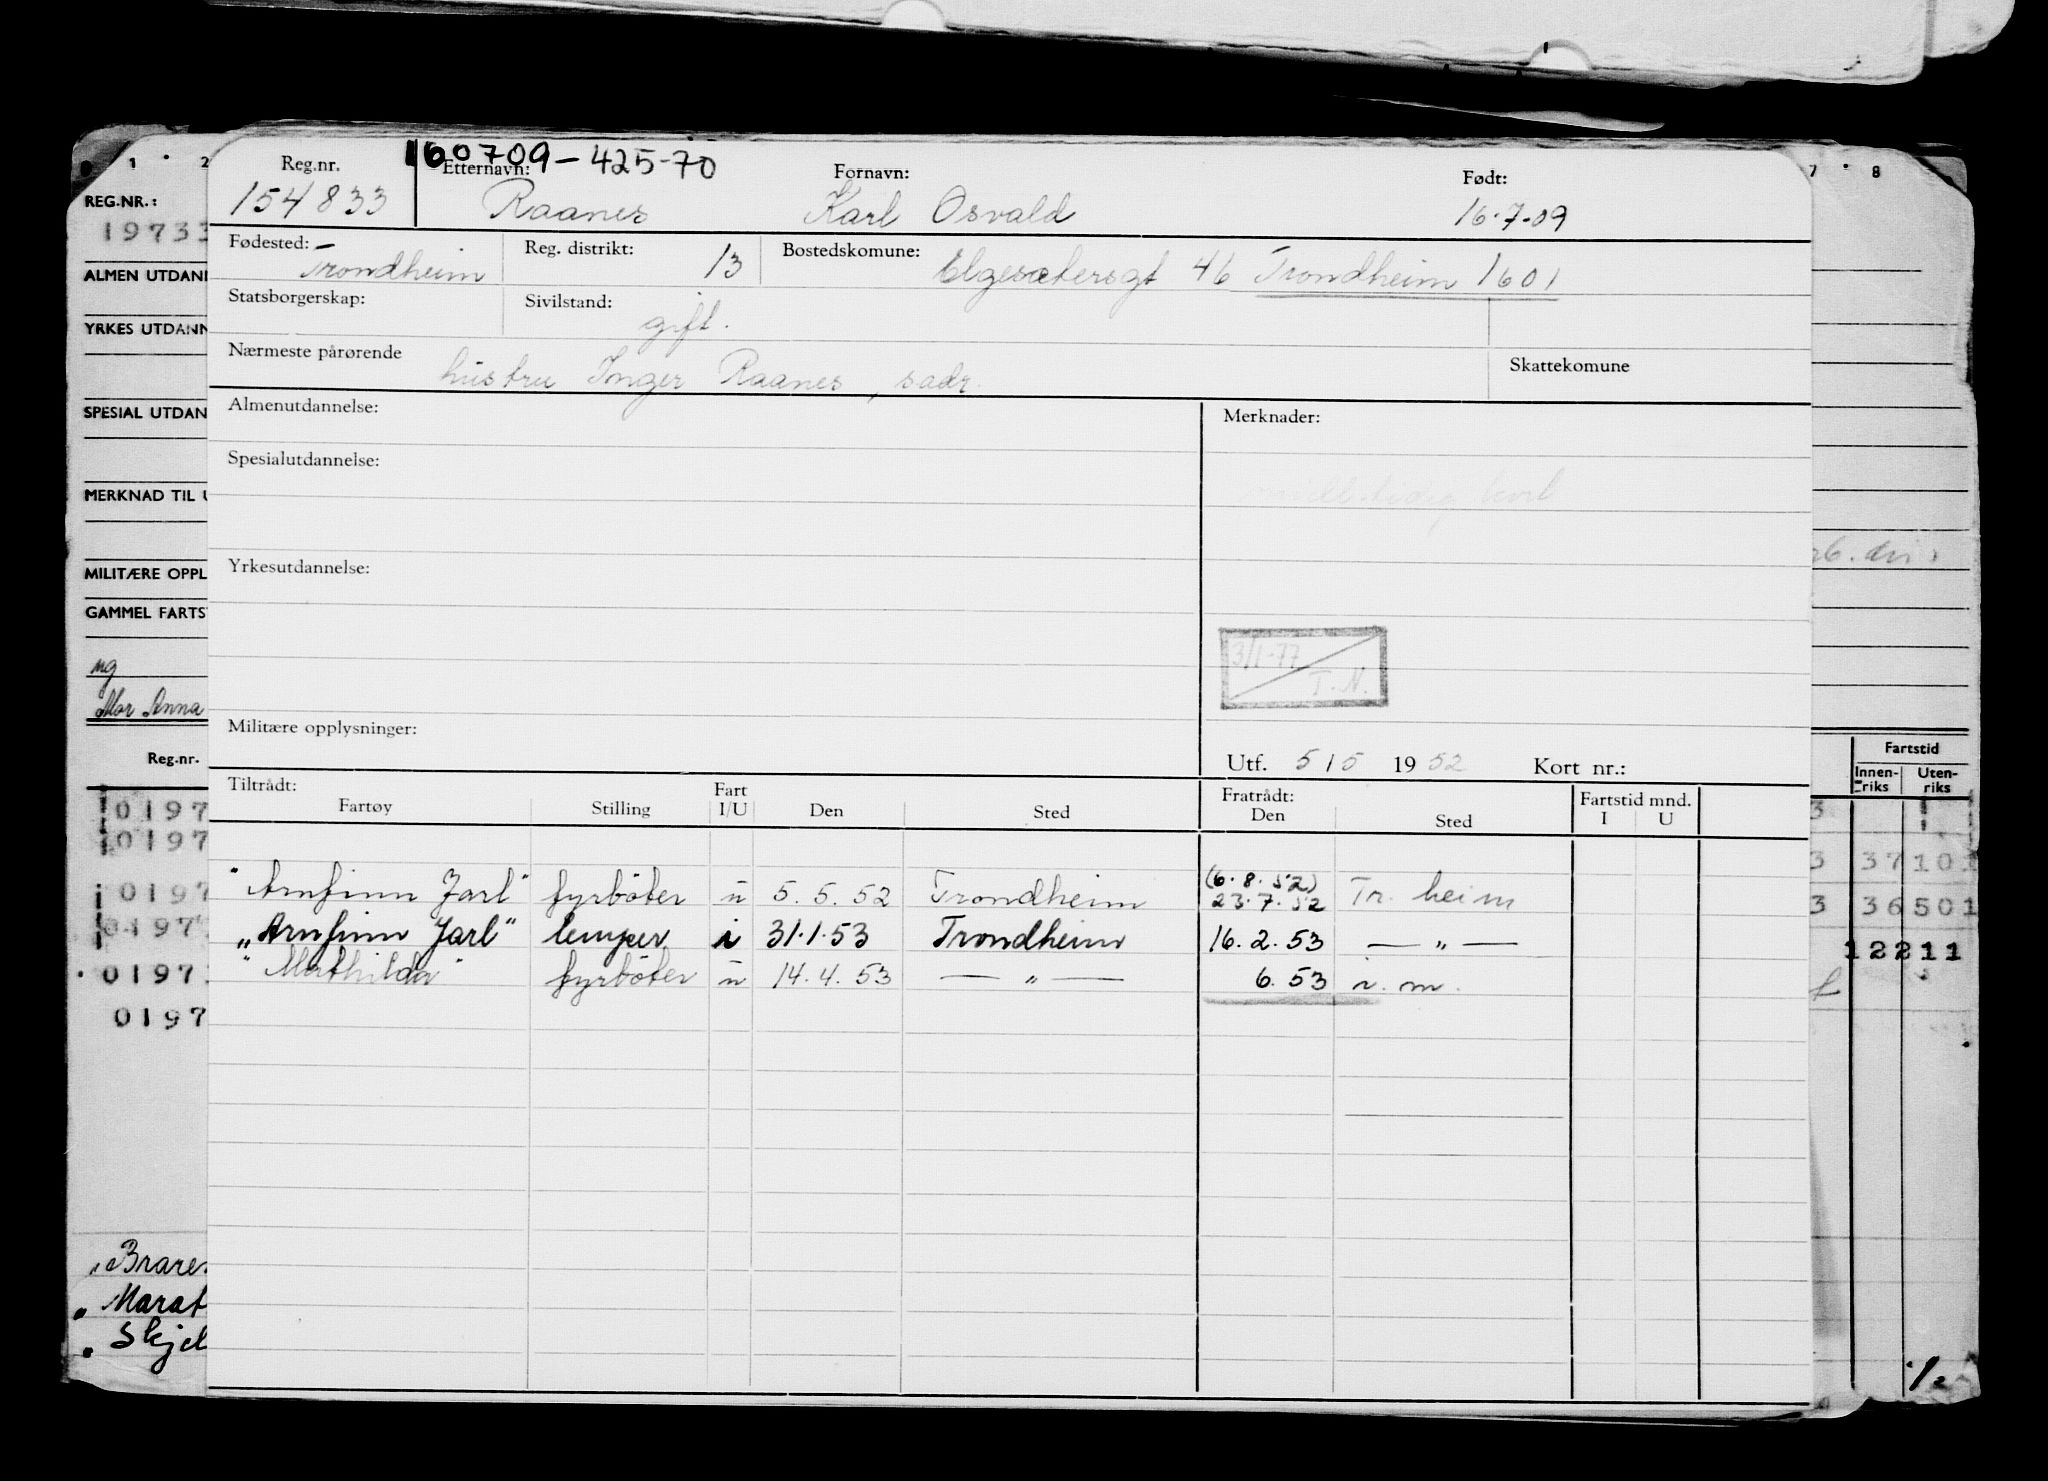 1 2
REG.NR.:
19733
ALMEN UTDAN
YRKES UTDANN
SPESIAL UTDAN
MERKNAD TIL U
MILITÆRE OPPL
GAMMEL FARTS
ug
Mor Anna
Reg.nr.
0197
0197
0197
0197
0197
0197
Brare
Marat
Skjel
160709-425-70
Reg.nr. Etternavn: Fornavn: Født:
154833 Raanes Karl Osvald 16.7.09
Fødested: Trondheim Reg. distrikt: 13 Bostedskomune: Elgesætersgt 46 Trondheim 1601
Statsborgerskap: Sivilstand: gift.
Nærmeste pårørende hustru Inger Raanes, sadr. Skattekomune
Almenutdannelse: Merknader:
Spesialutdannelse:
Yrkesutdannelse:
3/1-77
T.N.
Militære opplysninger:
Utf. 5/5 1952 Kort nr.:
Tiltrådt: Fart Fratrådt: Fartstid mnd.
Fartøy Stilling I/U Den Sted Den Sted I U
(6.8.52)
"Arnfinn Jarl" fyrbøter u 5.5.52 Trondheim 23.7.52 Tr.heim
"Arnfinn Jarl" lemper i 31.1.53 Trondheim 16.2.53 — " —
"Mathilda" fyrbøter u 14.4.53 — " — 6.53 i.m.
7 8
Fartstid
Innen-riks Uten-riks
3
3 37 101
3 36 501
122 11